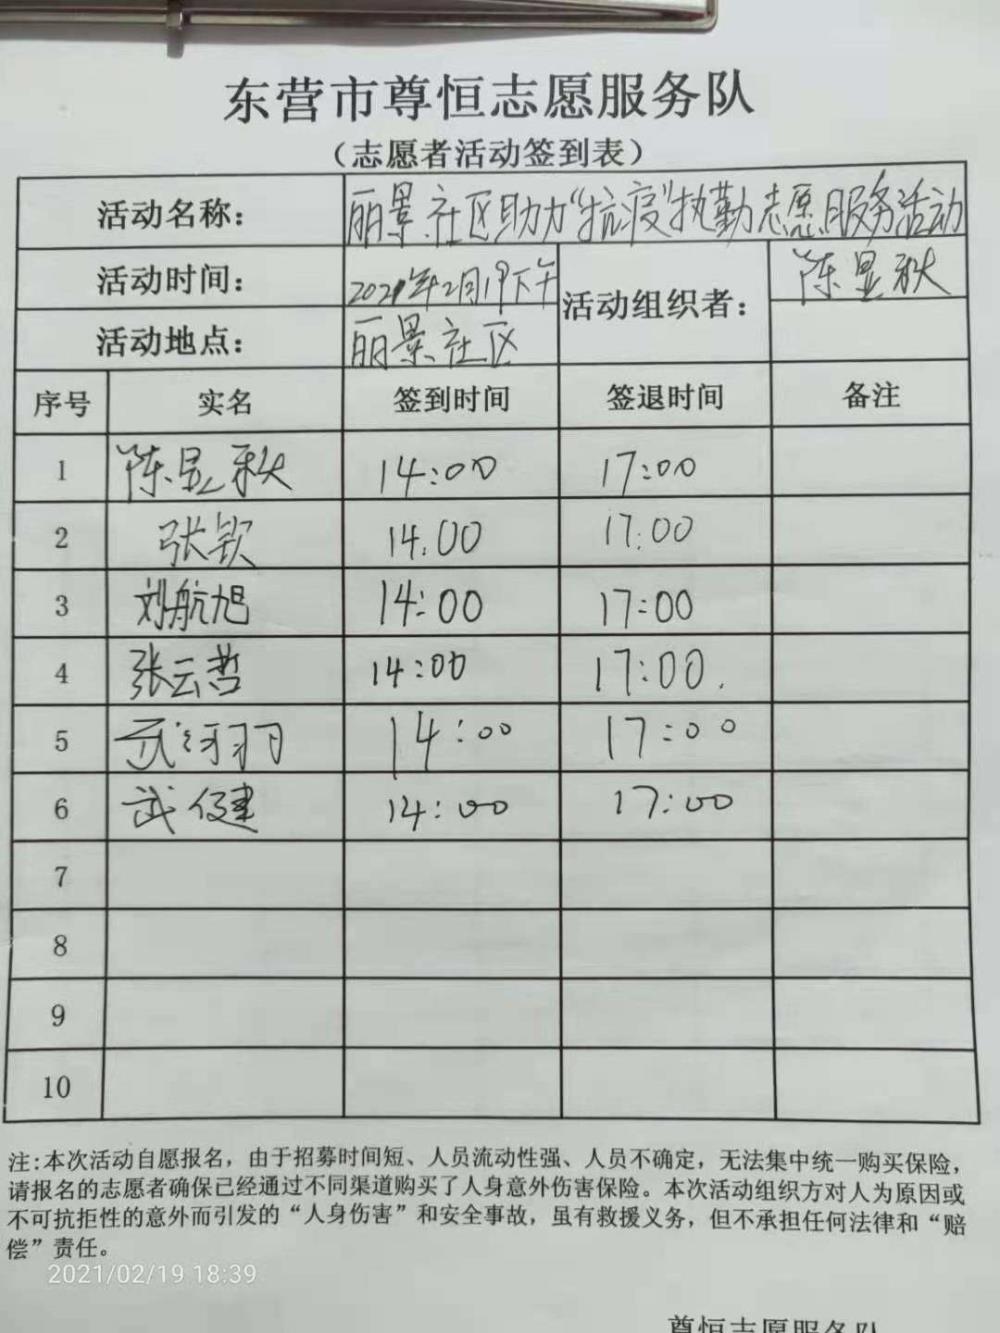 东营市尊恒志愿服务队
（志愿者活动签到表）
活动名称： 丽景社区助力“抗疫”执勤志愿服务活动
活动时间： 2021年2月19下午 活动组织者： 陈显秋
活动地点： 丽景社区
序号 实名 签到时间 签退时间 备注
1 陈显秋 14:00 17:00
2 张钦 14:00 17:00
3 刘航旭 14:00 17:00
4 张云哲 14:00 17:00.
5 14:00 17:00
6 武健 14:00 17:00
7
8
9
10
注:本次活动自愿报名，由于招募时间短、人员流动性强、人员不确定，无法集中统一购买保险，
请报名的志愿者确保已经通过不同渠道购买了人身意外伤害保险。本次活动组织方对人为原因或
不可抗拒性的意外而引发的“人身伤害”和安全事故，虽有救援义务，但不承担任何法律和“赔
偿”责任。
2021/02/19 18:39
尊恒志愿服务队